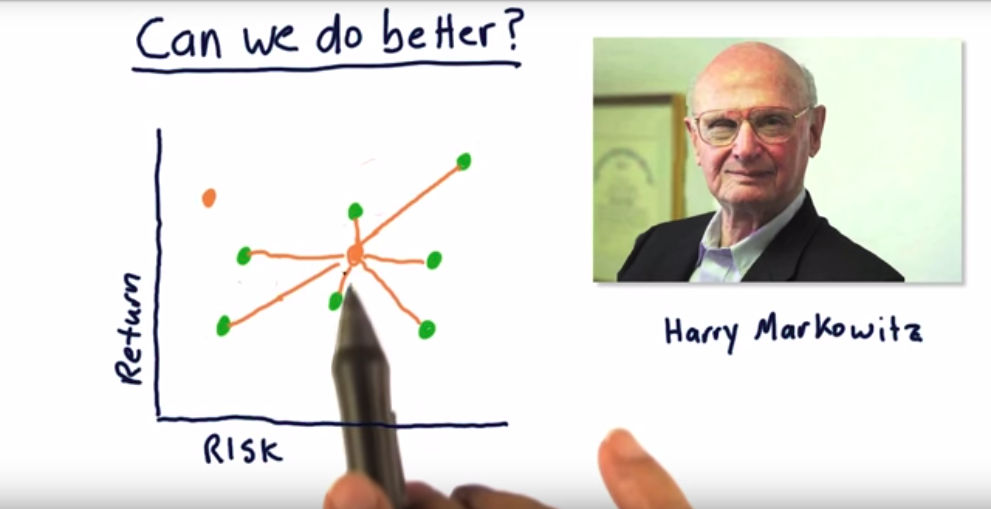 Can we do better?
Return
RISK
Harry Markowitz